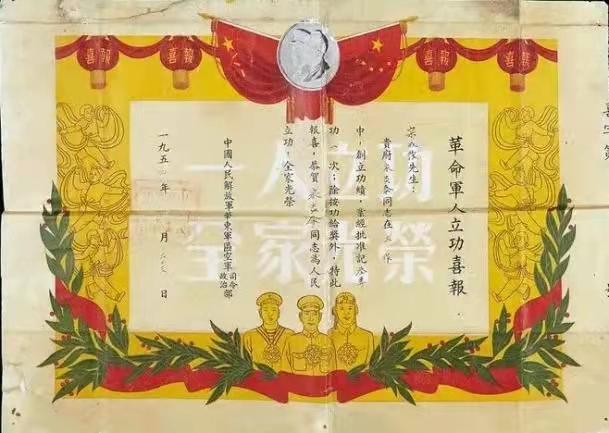 喜報
喜報
喜報
喜報
一人立功
全家光榮
革命軍人立功喜報
先生：
貴府同志在作
中，創立功績，業經批准記等
功一次；除按功給獎外，特此
報喜，恭賀同志為人民
立功，全家光榮
中國人民解放軍華東軍區空軍司令政治部
一九五年月日